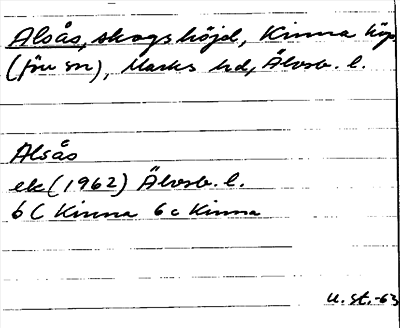 Alsås, skogshöjd, Kinna köp.
(förr sn), Marks hd, Älvsb. l.
Alsås
ek (1962) Älvsb. l.
6 C Kinna 6 c Kinna
U. st. -63